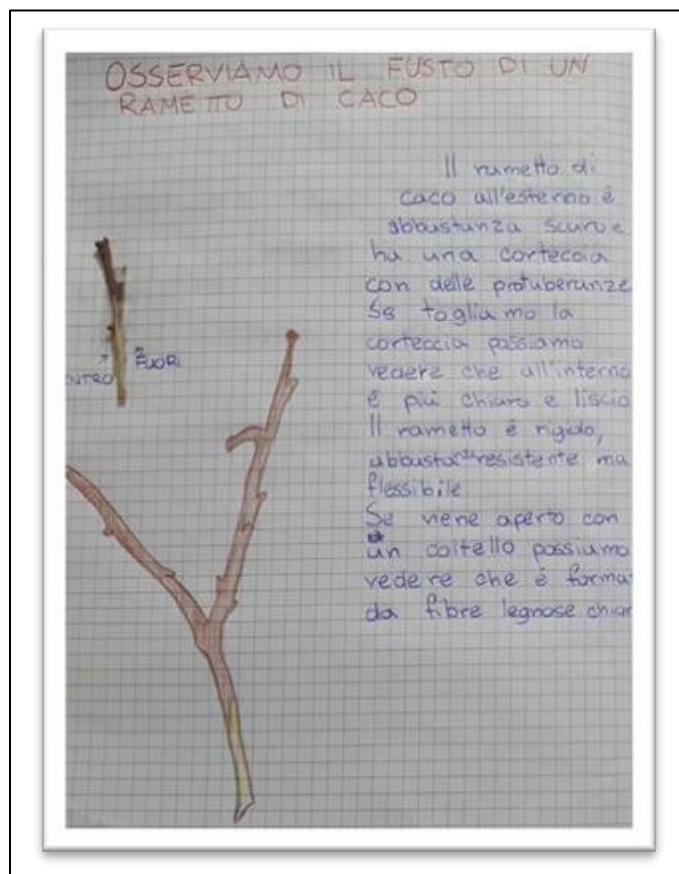 OSSERVIAMO IL FUSTO DI UN
RAMETTO DI CACO
Il rametto di
caco all'esterno è
abbastanza scuro e
ha una corteccia
con delle protuberanze
Se togliamo la
corteccia possiamo
vedere che all'interno
è più chiaro e liscio
Il rametto è rigido,
abbastanza resistente ma
flessibile
Se viene aperto con
un coltello possiamo
vedere che è forma
da fibre legnose chiar
NTRO
FUORI